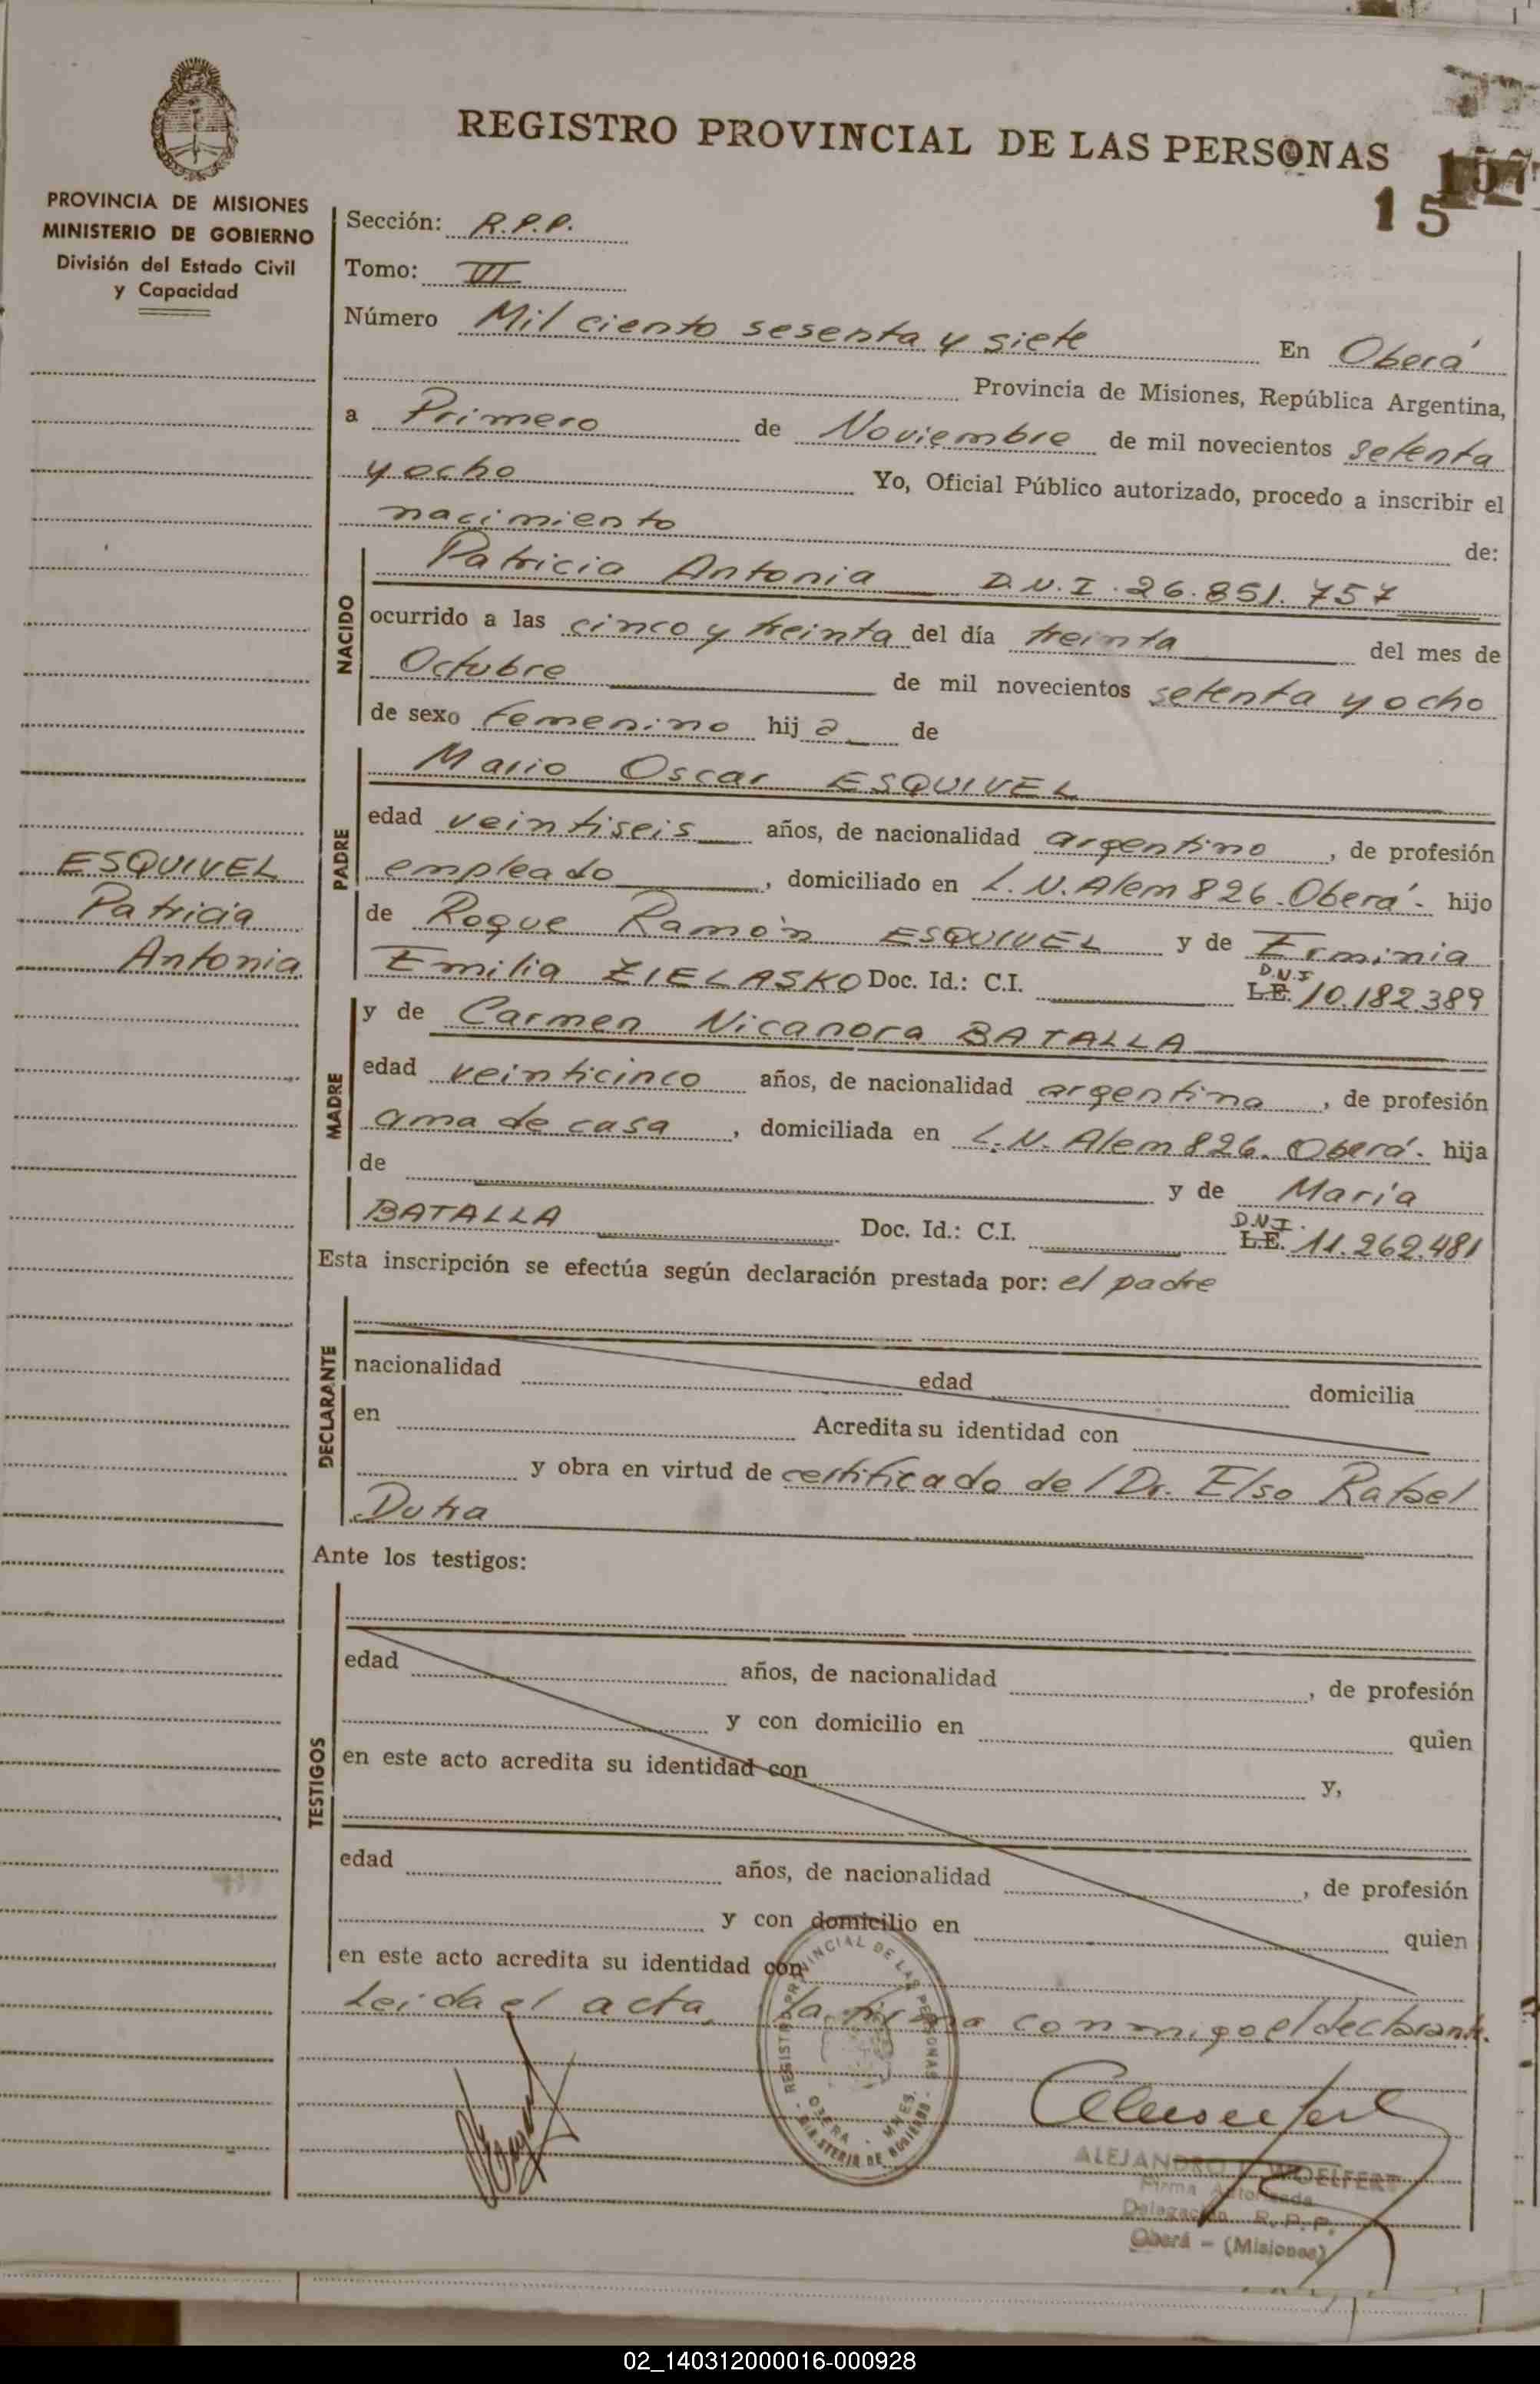 REGISTRO PROVINCIAL DE LAS PERSONAS
157
15
PROVINCIA DE MISIONES
MINISTERIO DE GOBIERNO
División del Estado Civil
y Capacidad
Sección: R.P.P.
Tomo: VI
Número Mil ciento sesenta y siete En Oberá
Provincia de Misiones, República Argentina,
a Primero de Noviembre de mil novecientos setenta
y ocho Yo, Oficial Público autorizado, procedo a inscribir el
nacimiento de:
NACIDO
Patricia Antonia D.N.I. 26.851.757
ocurrido a las cinco y treinta del día treinta del mes de
Octubre de mil novecientos setenta y ocho
de sexo femenino hij a de
PADRE
Mario Oscar ESQUIVEL
edad veintiseis años, de nacionalidad argentino, de profesión
empleado, domiciliado en L.N.Alem 826.Oberá.- hijo
de Roque Ramón ESQUIVEL y de Erminia
Emilia ZIELASKO Doc. Id.: C.I. D.N.I L.E. 10.182.389
ESQUIVEL
Patricia
Antonia
MADRE
y de Carmen Nicanora BATALLA
edad veinticinco años, de nacionalidad argentina, de profesión
ama de casa, domiciliada en L.N. Alem 826. Oberá.- hija
de y de María
BATALLA Doc. Id.: C.I. D.N.I. L.E. 11.262.481
Esta inscripción se efectúa según declaración prestada por: el padre
DECLARANTE
nacionalidad edad domicilia
en Acredita su identidad con
y obra en virtud de certificado del Dr. Elso Rafael
Dutra
Ante los testigos:
TESTIGOS
edad años, de nacionalidad, de profesión
y con domicilio en quien
en este acto acredita su identidad con y,
edad años, de nacionalidad, de profesión
y con domicilio en quien
en este acto acredita su identidad con
Leida el acta, la firma conmigo el declarante.
REGISTRO PROVINCIAL DE LAS PERSONAS
OBERA - MNES.
MINISTERIO DE GOBIERNO
ALEJANDRO WOELFERT
Firma Autorizada
Delegación R.P.P.
Oberá - (Misiones)
02_140312000016-000928